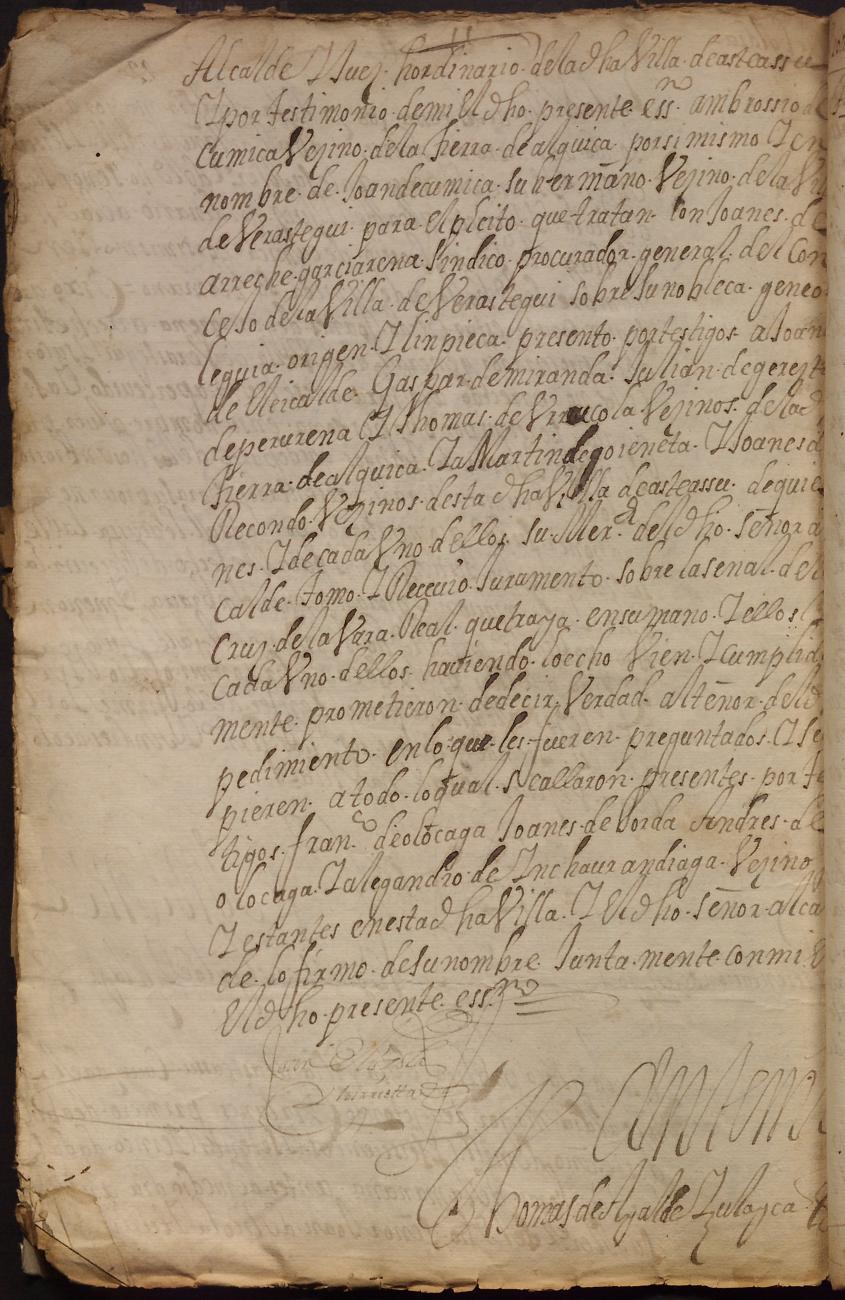 Alcalde Y Juez hordinario de la dha Villa de asteassu
Y por testimonio de mi El dho presente essno ambrossio de
Cumica Vezino de la tierra de alquica por si mismo Y en
nombre de Joan de cumica su hermano Vezino de la Vi
de Verastegui para el pleito que tratan con Joanes de
arreche garciarena sindico procurador general del Con
cejo de la Villa de Verastegui sobre su nobleca geneo
leguia origen Y linpieca presento por testigos a Joan
de Eleicalde Gaspar de miranda Julian de
de perurena Y Thomas de Vrrucola Vezinos de la d
tierra de alquica Y a Martin de goieneta Y Joanes d
Recondo Vezinos desta dha Villa de asteassu de quie
nes Y de cada Vno dellos su Merd del dho señor a
calde tomo Y Receuio Juramento sobre la senal de
Cruz de la Vara Real que traya en su mano Y ellos
cada Vno dellos haciendo lo echo Vien Y Cumplida
mente prometieron de decir Verdad al tenor del d
pedimiento en lo que les fueren preguntados Y s
pieren a todo lo qual se allaron presentes por te
tigos franco de olocaga Joanes de borda Andres de
olocaga Y alegandro de Ynchaurandiaga Vezinos
Y estantes en esta dha Villa Y El dho señor alca
de lo firmo de su nombre Junta mente con mi
El dho presente essno
Antemi
Tomas de Ayalde Zulayca